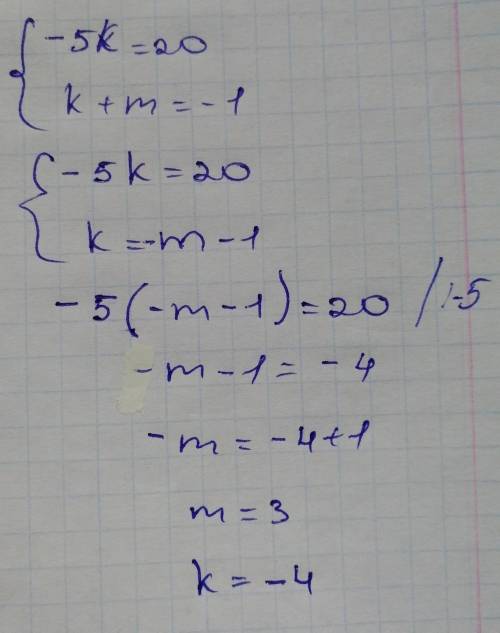 -5k = 20
k + m = -1
-5k = 20
k = -m - 1
-5(-m - 1) = 20 /:-5
-m - 1 = -4
-m = -4 + 1
m = 3
k = -4